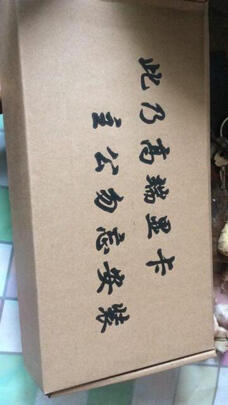 此乃高端显卡
主公勿忘安装